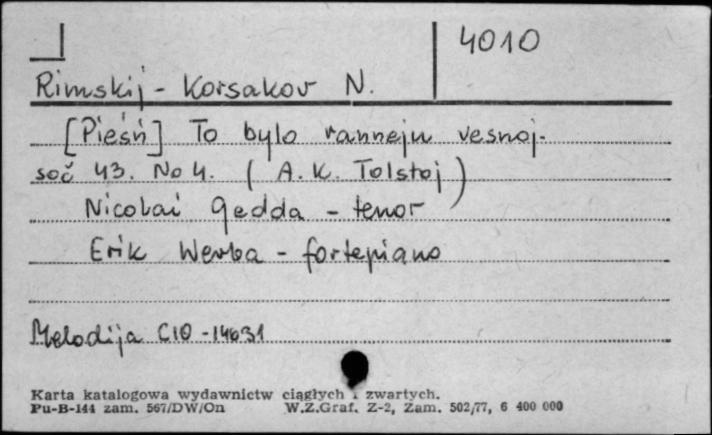 4010
Rimskij - Korsakov N.
[Pieśń] To bylo ranneju vesnoj.
soč 43. No 4. (A. K. Tolstoj)
Nicolai Gedda - tenor
Erik Werba - fortepiano
Melodija C10 - 14631
Karta katalogowa wydawnictw ciągłych i zwartych.
Pu-B-144 zam. 567/DW/On W.Z.Graf. Z-2, Zam. 502/77, 6 400 000